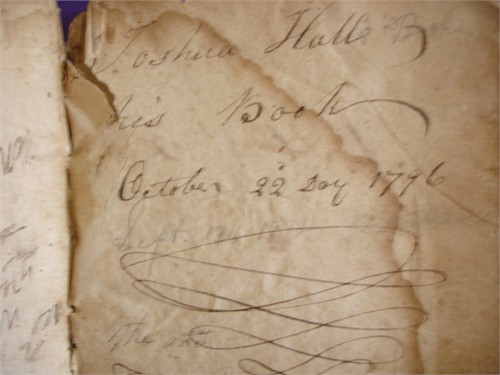 Joshua Hall
his Book
October 22 Day 1796
Sept.
The